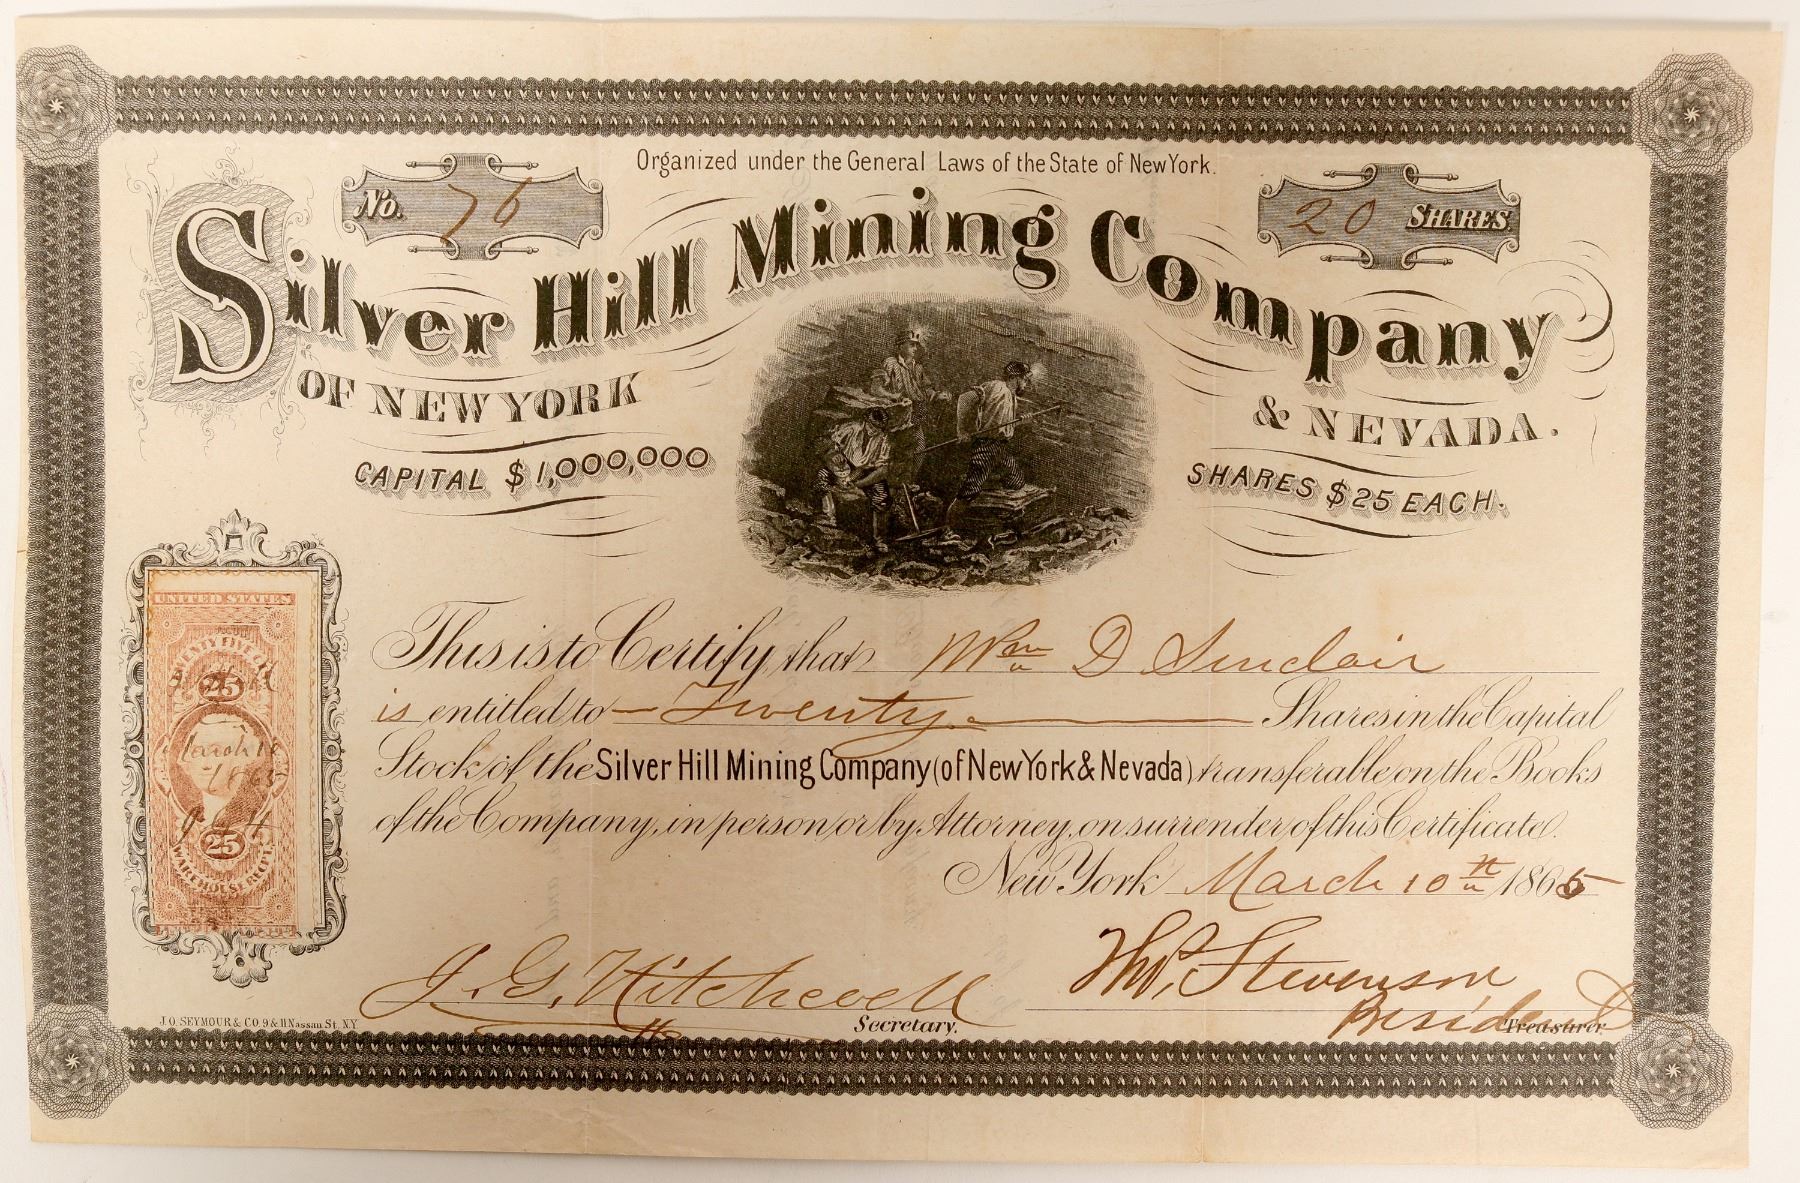 Organized under the General Laws of the State of New York.
No. 76
20 SHARES
Silver Hill Mining Company
OF NEW YORK & NEVADA.
CAPITAL $1,000,000
SHARES $25 EACH.
UNITED STATES
TWENTY FIVE
25
March 10
1865
25
WAREHOUSE RECPT.
This is to Certify that Wm D Sinclair
is entitled to Twenty Shares in the Capital
Stock of the Silver Hill Mining Company (of New York & Nevada) transferable on the Books
of the Company, in person or by Attorney, on surrender of this Certificate.
New York March 10th 1865
J. G. Hitchcock
Secretary.
Thos. Stevenson
President
Treasurer
J.O. SEYMOUR & CO. 9 & 11 Nassau St. N.Y